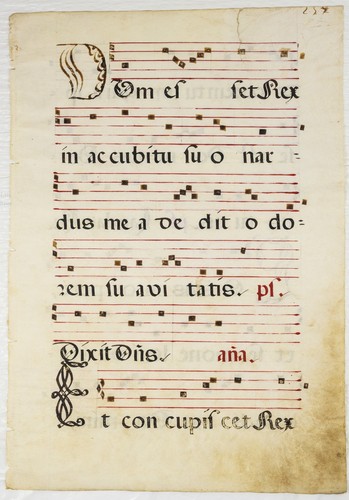 Dum es set Rex
in ac cubitu su o nar-
dus me a de dit o do-
rem su a vi tatis. ps.
Dixit Dñs. aña.
Et con cupis cet Rex